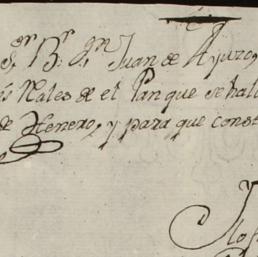 Sr. Dr. Dn. Juan de Ayuzo,
és Reales de el Pan que se hall
de Henero, y para que const